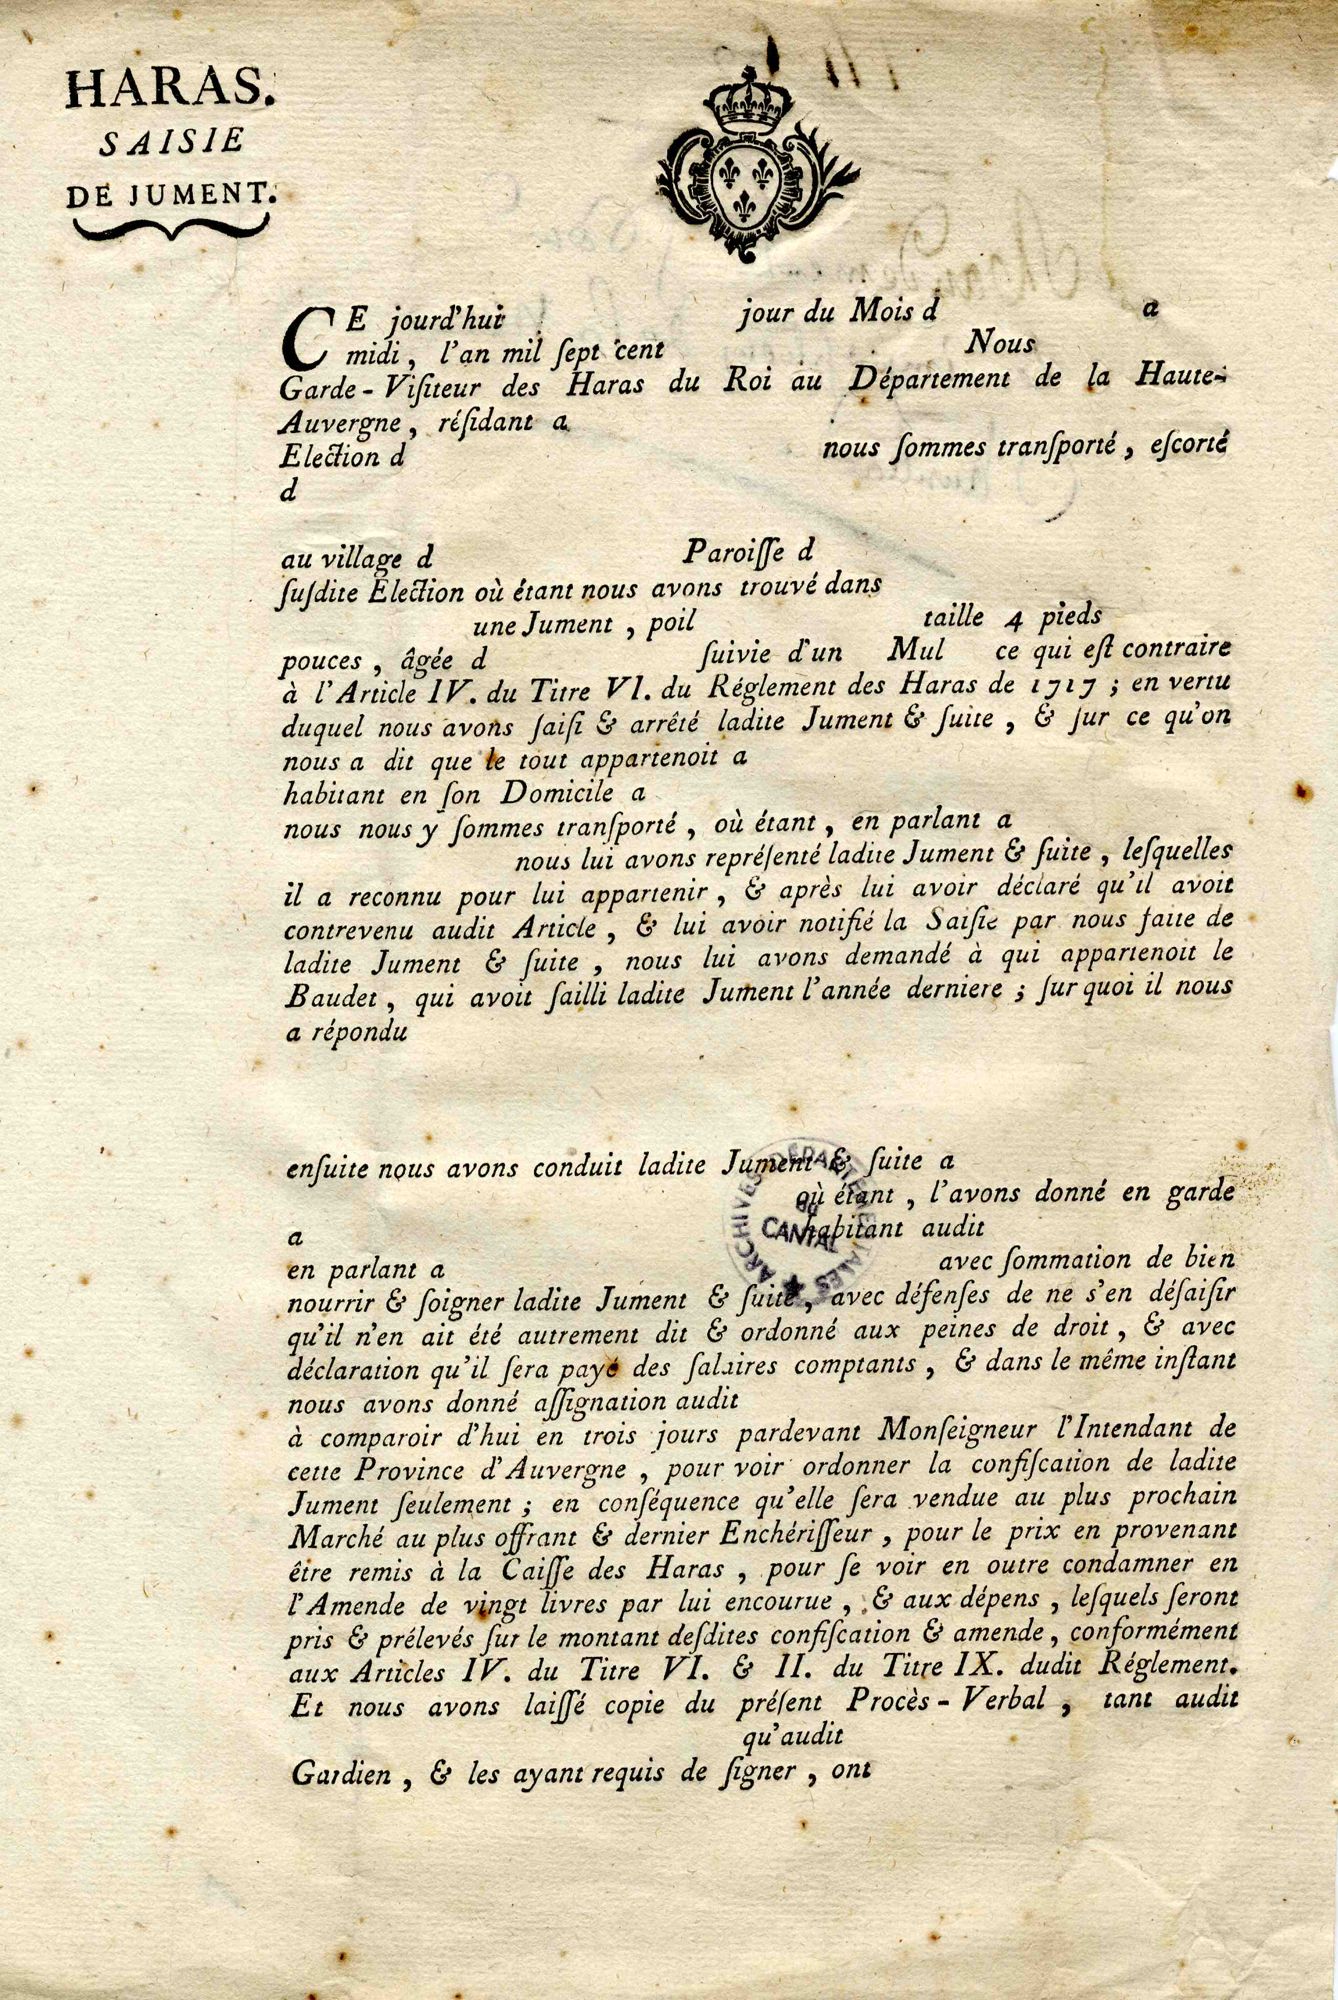 HARAS.
SAISIE
DE JUMENT.
CE jourd'hui jour du Mois d a
midi, l'an mil ſept cent Nous
Garde-Viſiteur des Haras du Roi au Département de la Haute-
Auvergne, réſidant a
Election d nous ſommes tranſporté, eſcorté
d
au village d Paroiſſe d
ſuſdite Election où étant nous avons trouvé dans
une Jument, poil taille 4 pieds
pouces, âgée d ſuivie d'un Mul ce qui eſt contraire
à l'Article IV. du Titre VI. du Réglement des Haras de 1717; en vertu
duquel nous avons ſaiſi & arrêté ladite Jument & ſuite, & ſur ce qu'on
nous a dit que le tout appartenoit a
habitant en ſon Domicile a
nous nous y ſommes tranſporté, où étant, en parlant a
nous lui avons repréſenté ladite Jument & ſuite, leſquelles
il a reconnu pour lui appartenir, & après lui avoir déclaré qu'il avoit
contrevenu audit Article, & lui avoir notifié la Saiſie par nous faite de
ladite Jument & ſuite, nous lui avons demandé à qui appartenoit le
Baudet, qui avoit ſailli ladite Jument l'année derniere; ſur quoi il nous
a répondu
enſuite nous avons conduit ladite Jument & ſuite a
où étant, l'avons donné en garde
a habitant audit
en parlant a avec ſommation de bien
nourrir & ſoigner ladite Jument & ſuite, avec défenſes de ne s'en déſaiſir
qu'il n'en ait été autrement dit & ordonné aux peines de droit, & avec
déclaration qu'il ſera payé des ſalaires comptants, & dans le même inſtant
nous avons donné aſſignation audit
à comparoir d'hui en trois jours pardevant Monſeigneur l'Intendant de
cette Province d'Auvergne, pour voir ordonner la confiſcation de ladite
Jument ſeulement; en conſéquence qu'elle ſera vendue au plus prochain
Marché au plus offrant & dernier Enchériſſeur, pour le prix en provenant
être remis à la Caiſſe des Haras, pour ſe voir en outre condamner en
l'Amende de vingt livres par lui encourue, & aux dépens, leſquels ſeront
pris & prélevés ſur le montant deſdites confiſcation & amende, conformément
aux Articles IV. du Titre VI. & II. du Titre IX. dudit Réglement.
Et nous avons laiſſé copie du préſent Procès-Verbal, tant audit
qu'audit
Gardien, & les ayant requis de ſigner, ont
ARCHIVES DÉPARTEMENTALES
DU
CANTAL